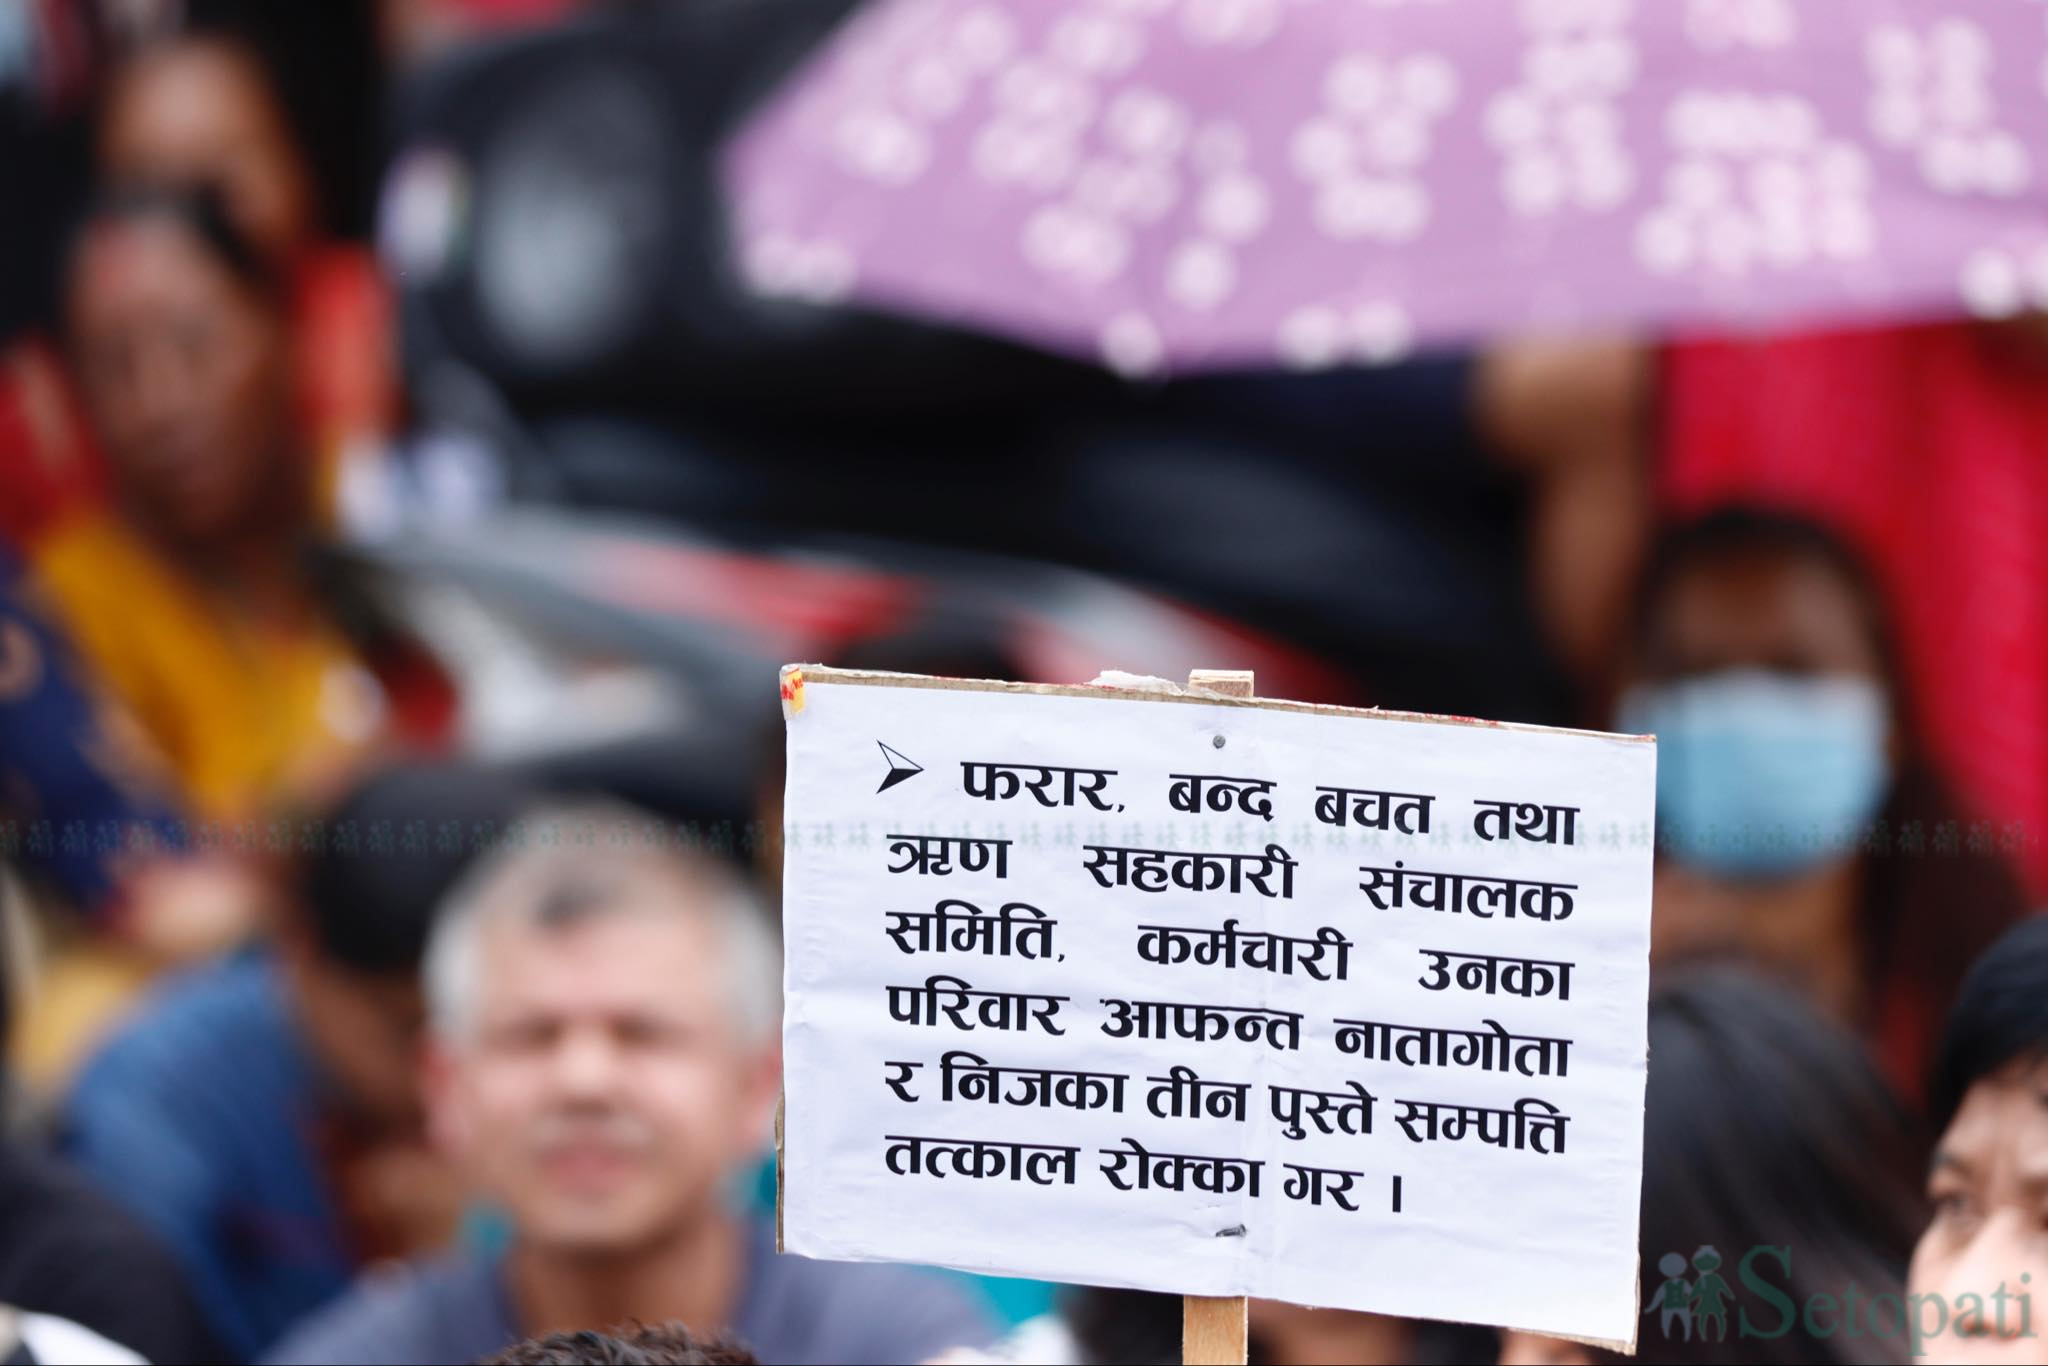 ➢ फरार, बन्द बचत तथा
ऋण सहकारी संचालक
समिति, कर्मचारी उनका
परिवार आफन्त नातागोता
र निजका तीन पुस्ते सम्पत्ति
तत्काल रोक्का गर ।
Setopati